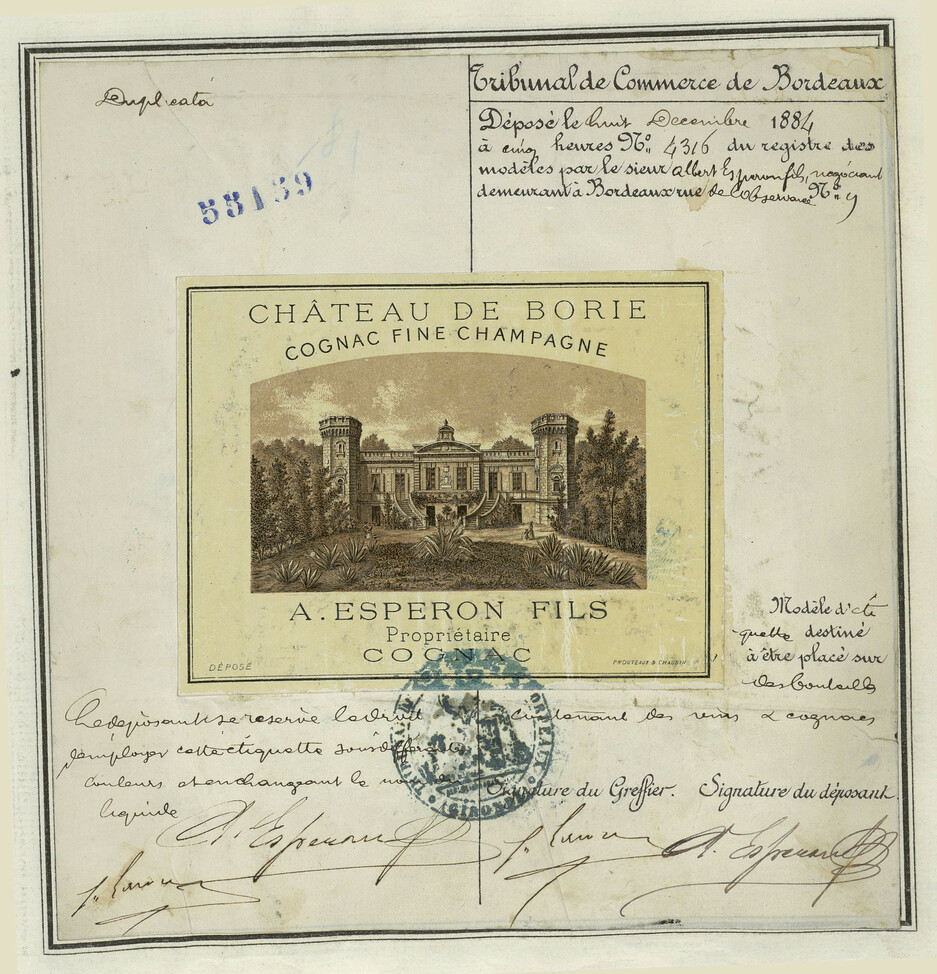 Duplicata
55139
Tribunal de Commerce de Bordeaux
Déposé le huit Decembre 1884
à cinq heures No. 4316 du registre des
modèles par le sieur Albert Esperon fils, négociant
demeurant à Bordeaux rue de l'observance No. 9
CHÂTEAU DE BORIE
COGNAC FINE CHAMPAGNE
A. ESPERON FILS
Propriétaire
COGNAC
DÉPOSÉ
PROUTEAUX & CHAUSIN
Modèle d'éti
quette destiné
à être placé sur
des bouteilles
contenant des vins & cognacs
Le déposant se reserve le droit
d'employer cette étiquette sous différentes
couleurs et en changeant le nom
liquide
GIRONDE
Signature du Greffier. Signature du déposant.
A. Esperon
A. Esperon